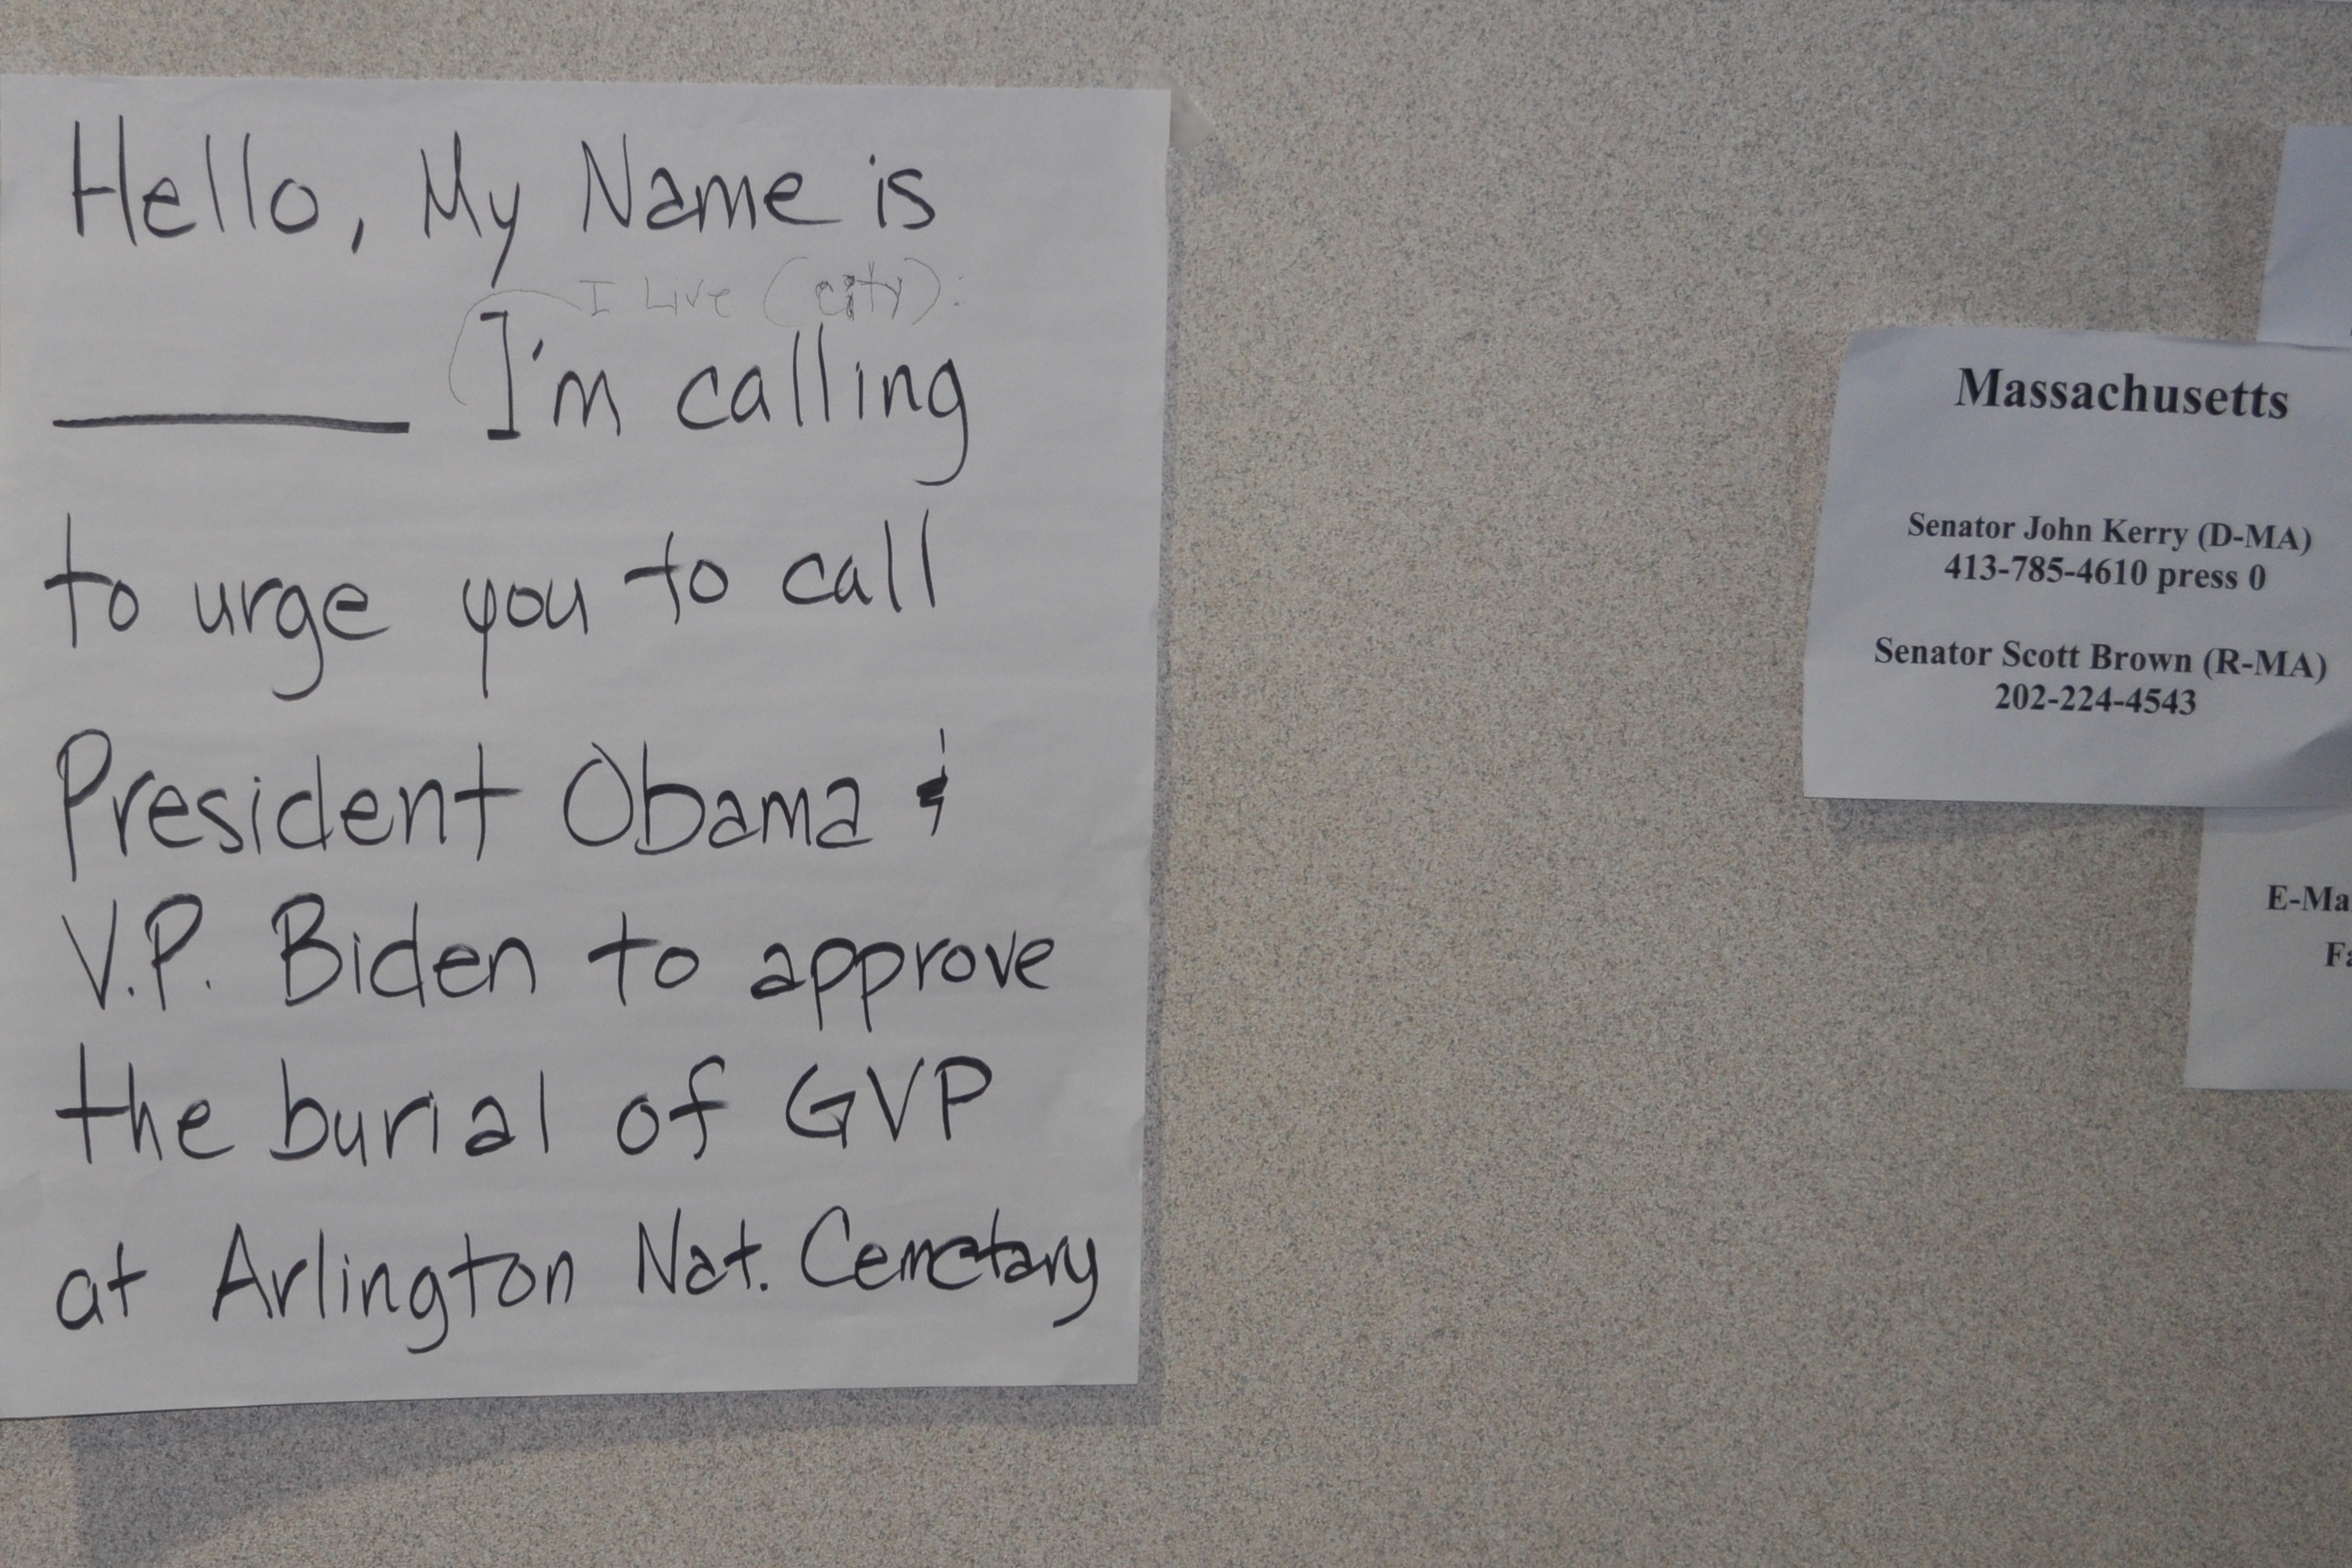 Hello, My Name is
I Live (city):
________ I'm calling
to urge you to call
President Obama &
V.P. Biden to approve
the burial of GVP
at Arlington Nat. Cemetary
Massachusetts
Senator John Kerry (D-MA)
413-785-4610 press 0
Senator Scott Brown (R-MA)
202-224-4543
E-Ma
Fa